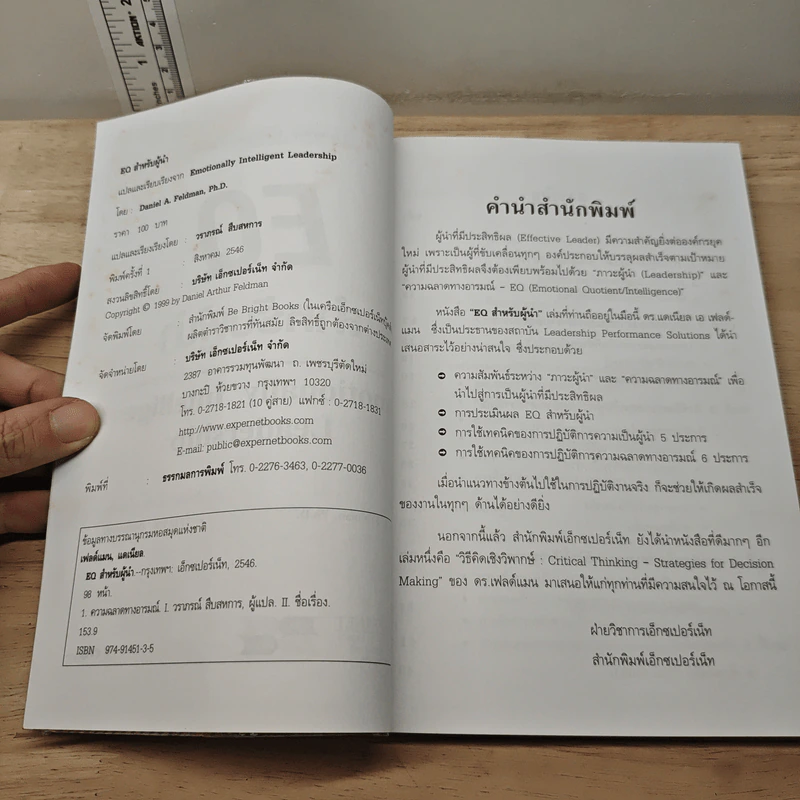 EQ สำหรับผู้นำ
แปลและเรียบเรียงจาก Emotionally Intelligent Leadership
โดย : Daniel A. Feldman, Ph.D.
ราคา 100 บาท
แปลและเรียบเรียงโดย : วราภรณ์ สืบสหการ
พิมพ์ครั้งที่ 1 : สิงหาคม 2546
สงวนลิขสิทธิ์โดย : บริษัท เอ็กซเปอร์เน็ท จำกัด
Copyright © 1999 by Daniel Arthur Feldman
จัดพิมพ์โดย : สำนักพิมพ์ Be Bright Books (ในเครือเอ็กซเปอร์เน็ท)
ผลิตตำราวิชาการที่ทันสมัย ลิขสิทธิ์ถูกต้องจากต่างประเทศ
จัดจำหน่ายโดย : บริษัท เอ็กซเปอร์เน็ท จำกัด
2387 อาคารรวมทุนพัฒนา ถ. เพชรบุรีตัดใหม่
บางกะปิ ห้วยขวาง กรุงเทพฯ 10320
โทร. 0-2718-1821 (10 คู่สาย) แฟกซ์ : 0-2718-1831
http://www.expernetbooks.com
E-mail: public@expernetbooks.com
พิมพ์ที่ : ธรรกมลการพิมพ์ โทร. 0-2276-3463, 0-2277-0036
ข้อมูลทางบรรณานุกรมหอสมุดแห่งชาติ
เฟลด์แมน, แดเนียล.
EQ สำหรับผู้นำ.--กรุงเทพฯ: เอ็กซเปอร์เน็ท, 2546.
98 หน้า.
1. ความฉลาดทางอารมณ์. I. วราภรณ์ สืบสหการ, ผู้แปล. II. ชื่อเรื่อง.
153.9
ISBN 974-91451-3-5
คำนำสำนักพิมพ์
ผู้นำที่มีประสิทธิผล (Effective Leader) มีความสำคัญยิ่งต่อองค์กรยุค
ใหม่ เพราะเป็นผู้ที่ขับเคลื่อนทุกๆ องค์ประกอบให้บรรลุผลสำเร็จตามเป้าหมาย
ผู้นำที่มีประสิทธิผลจึงต้องเพียบพร้อมไปด้วย "ภาวะผู้นำ (Leadership)" และ
"ความฉลาดทางอารมณ์ - EQ (Emotional Quotient/Intelligence)"
หนังสือ "EQ สำหรับผู้นำ" เล่มที่ท่านถืออยู่ในมือนี้ ดร.แดเนียล เอ เฟลด์-
แมน ซึ่งเป็นประธานของสถาบัน Leadership Performance Solutions ได้นำ
เสนอสาระไว้อย่างน่าสนใจ ซึ่งประกอบด้วย
➲ ความสัมพันธ์ระหว่าง "ภาวะผู้นำ" และ "ความฉลาดทางอารมณ์" เพื่อ
นำไปสู่การเป็นผู้นำที่มีประสิทธิผล
➲ การประเมินผล EQ สำหรับผู้นำ
➲ การใช้เทคนิคของการปฏิบัติการความเป็นผู้นำ 5 ประการ
➲ การใช้เทคนิคของการปฏิบัติการความฉลาดทางอารมณ์ 6 ประการ
เมื่อนำแนวทางข้างต้นไปใช้ในการปฏิบัติงานจริง ก็จะช่วยให้เกิดผลสำเร็จ
ของงานในทุกๆ ด้านได้อย่างดียิ่ง
นอกจากนี้แล้ว สำนักพิมพ์เอ็กซเปอร์เน็ท ยังได้นำหนังสือที่ดีมากๆ อีก
เล่มหนึ่งคือ "วิธีคิดเชิงวิพากษ์ : Critical Thinking - Strategies for Decision
Making" ของ ดร.เฟลด์แมน มาเสนอให้แก่ทุกท่านที่มีความสนใจไว้ ณ โอกาสนี้
ฝ่ายวิชาการเอ็กซเปอร์เน็ท
สำนักพิมพ์เอ็กซเปอร์เน็ท